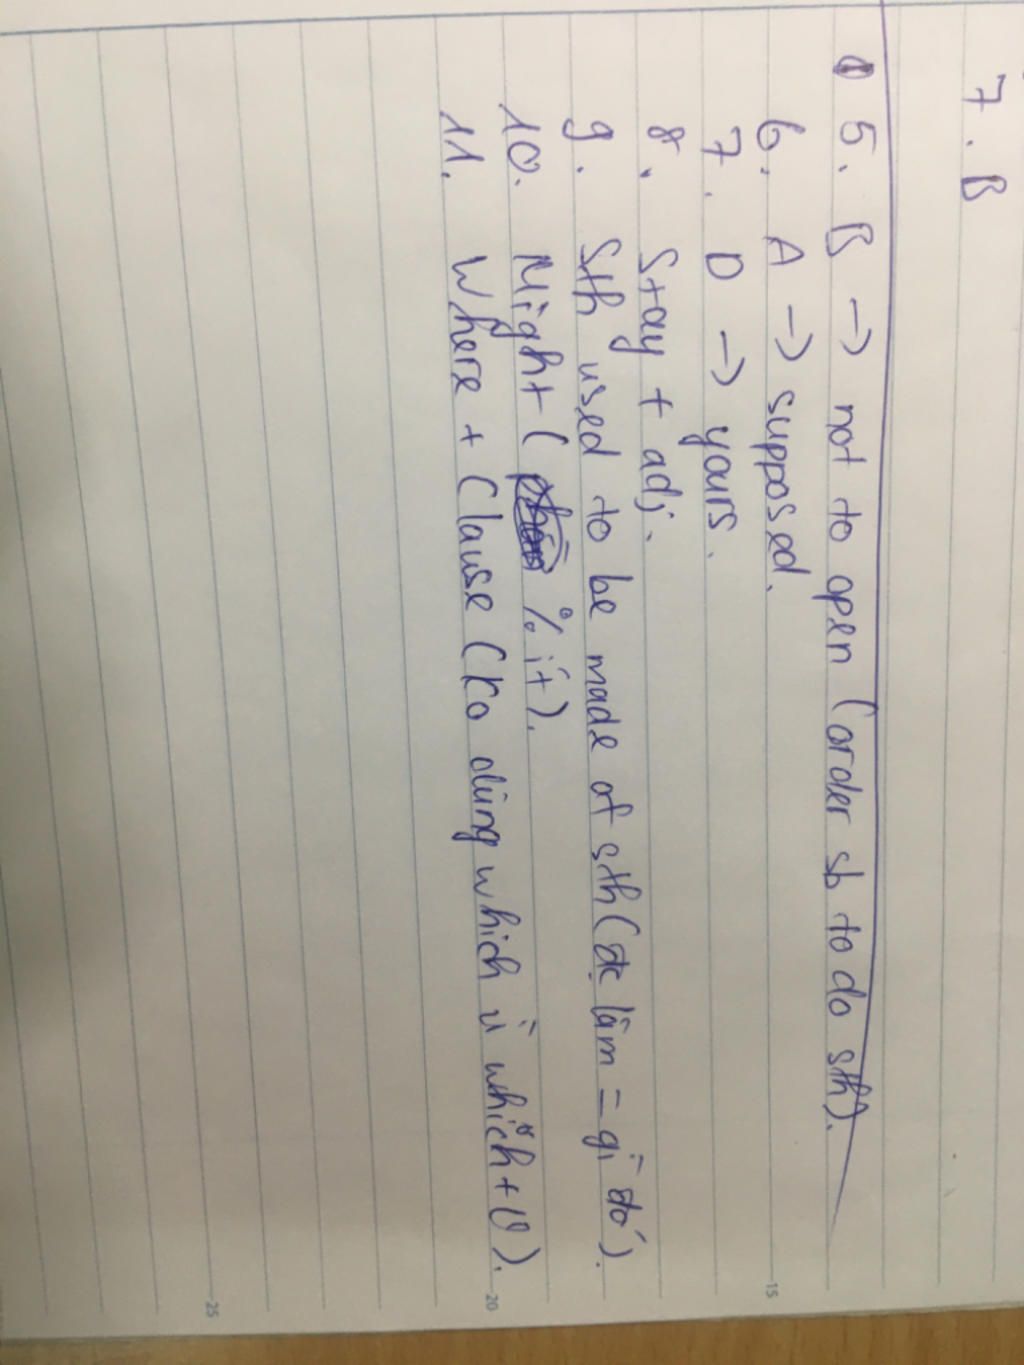 7. B
5. B → not to open (order sb to do sth).
6. A → supposed.
7. D → yours.
8. Stay + adj.
9. Sth used to be made of sth (đc làm = gì đó).
10. Might ( % ít).
11. Where + Clause (ko dùng which vì which + V).
15
20
25